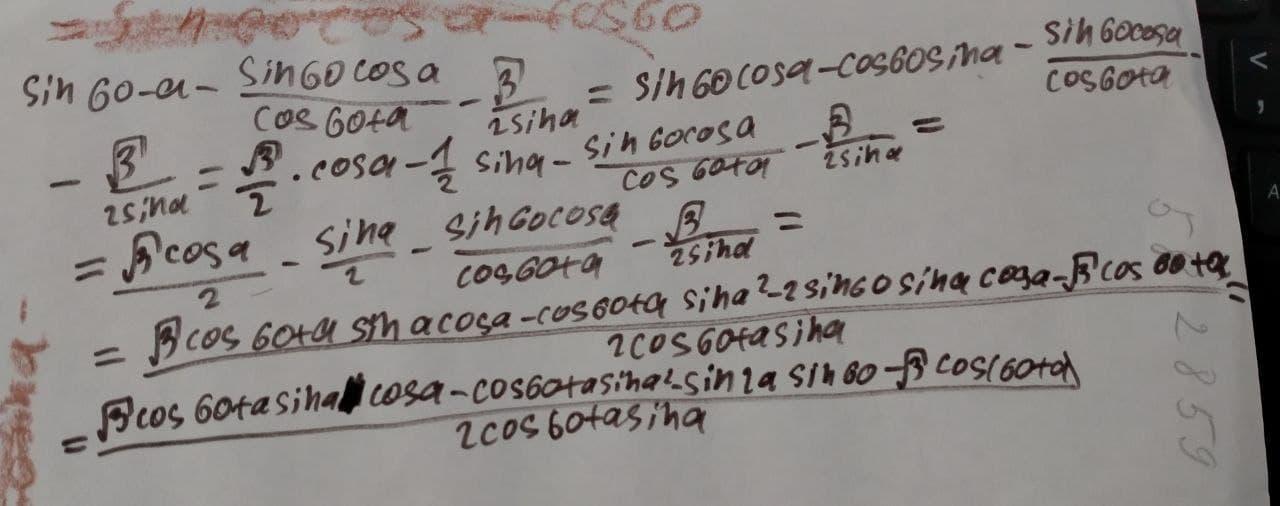 sin 60-a - sin60cosa/cos60+a - √3/2sina = sin60cosa-cos60sina - sin60cosa/cos60+a -
- √3/2sina = √3/2 · cosa - 1/2 sina - sin60cosa/cos60+a - √3/2sina =
= √3cosa/2 - sina/2 - sin60cosa/cos60+a - √3/2sina =
= √3cos60+a sinacosa-cos60+a sina²-2sin60sina cosa-√3cos60+a/2cos60+asina =
= √3cos60+asina cosa-cos60+asina²-sin2a sin60-√3cos(60+a)/2cos60+asina
52859